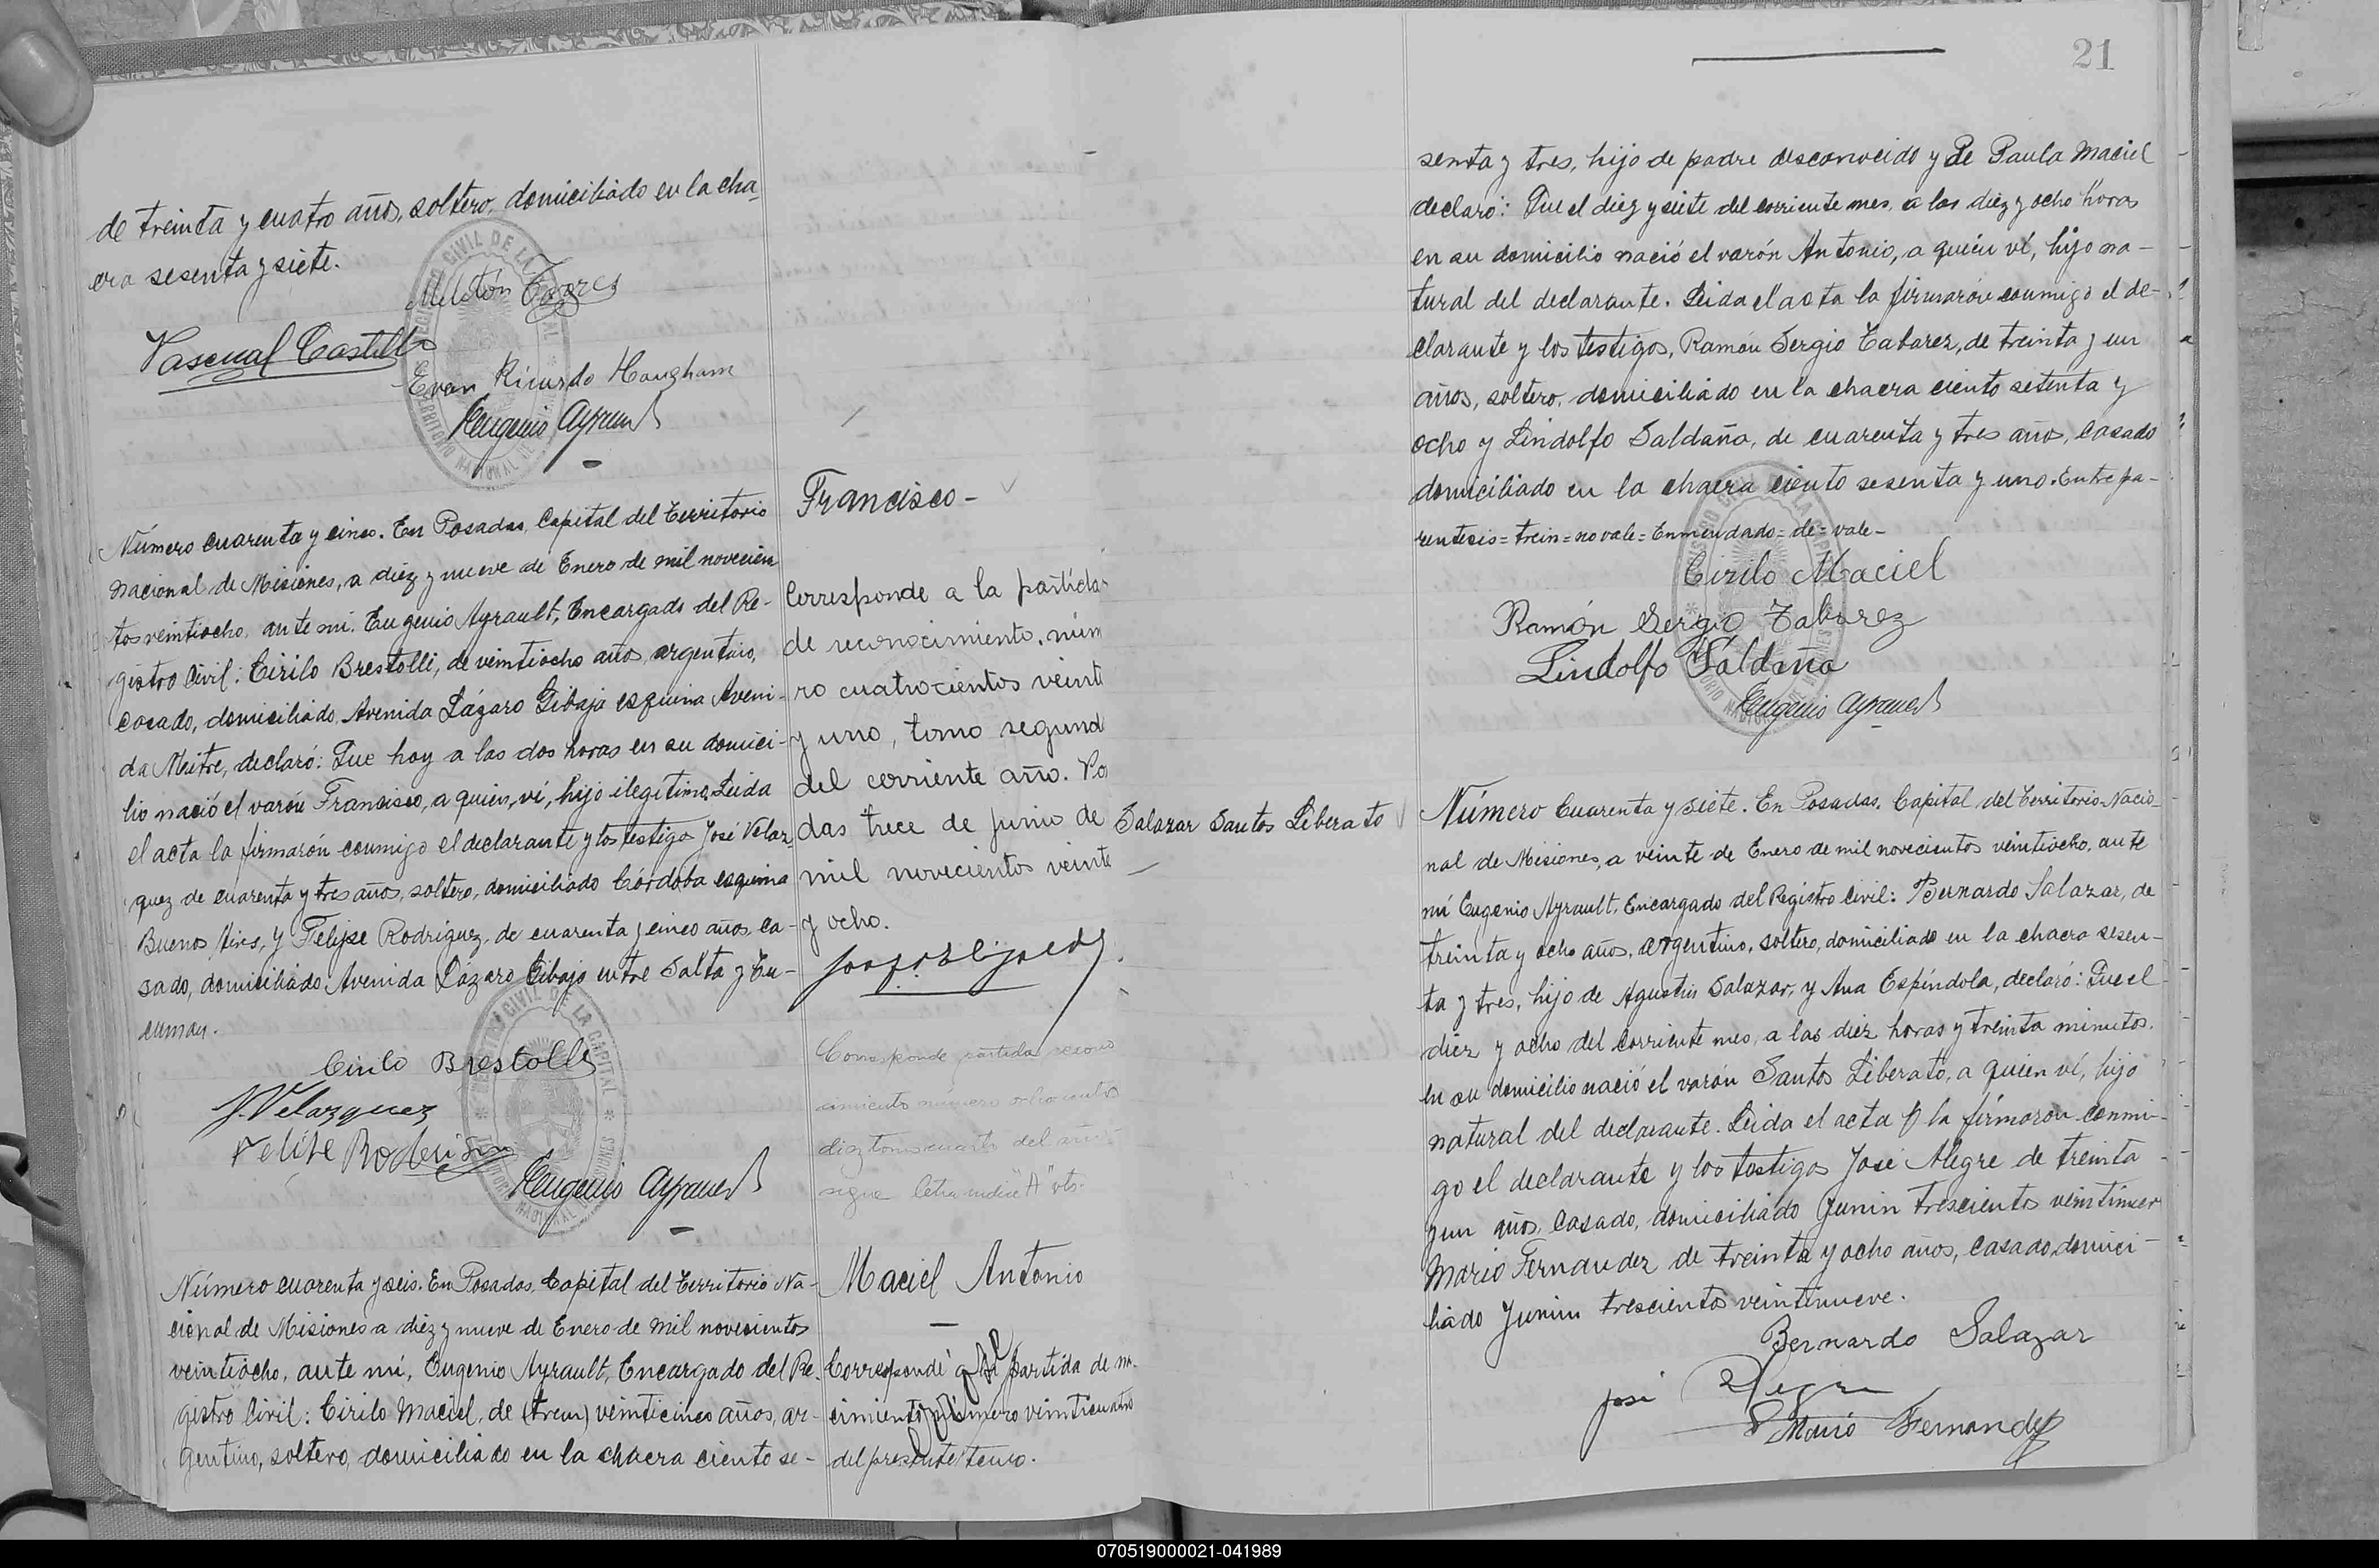 de treinta y cuatro años, soltero, domiciliado en la cha-
cra sesenta y siete.
Melitón Torres
Pascual Castillo
Evan Ricardo Haugham
Eugenio Ayrault
Número cuarenta y cinco. En Posadas, Capital del Territorio
nacional de Misiones, a diez y nueve de Enero de mil novecien
tos veintiocho, ante mi, Eugenio Ayrault, Encargado del Re-
gistro Civil: Cirilo Brestolli, de veintiocho años, argentino,
casado, domiciliado Avenida Lázaro Gibaja esquina Aveni-
da Mitre, declaró: Que hoy a las dos horas en su domici-
lio nació el varón Francisco, a quien, ví, hijo ilegítimo. Leida
el acta la firmarón conmigo el declarante y los testigo José Velaz
quez de cuarenta y tres años, soltero, domiciliado Córdoba esquina
Buenos Aires, y Felipe Rodriguez, de cuarenta y cinco años, ca-
sado, domiciliado Avenida Lázaro Gibaja entre Salta y Tu-
cuman.
Cirilo Brestolli
J. Velazquez
Felipe Rodriguez
Eugenio Ayrault
Número cuarenta y seis. En Posadas, Capital del Territorio Na-
cional de Misiones a diez y nueve de Enero de mil novecientos
veintiocho, ante mí, Eugenio Ayrault, Encargado del Re-
gistro Civil: Cirilo Maciel, de (trein) veinticinco años, ar-
gentino, soltero, domiciliado en la chacra ciento se-
Francisco-
Corresponde a la partida
de reconocimiento, núm
ro cuatrocientos veinti
y uno, tomo segund
del corriente año. Po
das trece de Junio de
mil novecientos veinte
y ocho.
Corresponde partida recono
cimiento número ochocientos
diez tomo cuarto del año
sigue letra indice "A"
Maciel Antonio
Corresponde a la partida de na-
cimiento número veinticuatro
del presente tomo.
21
senta y tres, hijo de padre desconocido y de Paula Maciel
declaró: Que el diez y siete del corriente mes, a las diez y ocho horas
en su domicilio nació el varón Antonio, a quien ví, hijo na-
tural del declarante. Leida el acta la firmarón conmigo el de-
clarante y los testigos, Ramón Sergio Tabarez, de treinta y un
años, soltero, domiciliado en la chacra ciento setenta y
ocho y Lindolfo Saldaña, de cuarenta y tres años, casado
domiciliado en la chacra ciento sesenta y uno. Entre pa-
rentesis = trein = no vale = Enmendado = de = vale -
Cirilo Maciel
Ramón Sergio Tabarez
Lindolfo Saldaña
Eugenio Ayrault
Salazar Santos Liberato
Número Cuarenta y siete. En Posadas, Capital del Territorio Nacio-
nal de Misiones, a veinte de Enero de mil novecientos veintiocho, ante
mí Eugenio Ayrault, Encargado del Registro Civil: Bernardo Salazar, de
treinta y ocho años, argentino, soltero, domiciliado en la chacra sesen-
ta y tres, hijo de Agustin Salazar, y Ana Espíndola, declaró: Que el
diez y ocho del corriente mes, a las diez horas y treinta minutos,
en su domicilio nació el varón Santos Liberato, a quien ví, hijo
natural del declarante. Leida el acta la firmaron conmi-
go el declarante y los testigos José Alegre de treinta
y un años, casado, domiciliado Junin trescientos veintinuev
Mario Fernandez de treinta y ocho años, casado, domici-
liado Junin trescientos veintinueve.
Bernardo Salazar
José Alegre
Mario Fernandez
REGISTRO CIVIL DE LA CAPITAL
TERRITORIO NACIONAL DE MISIONES
070519000021-041989